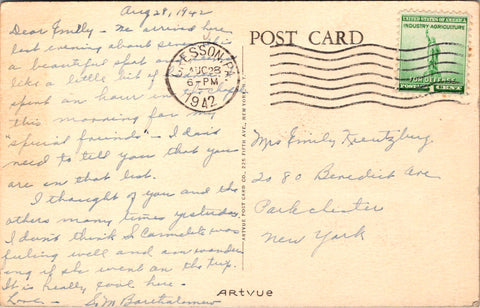 Aug 28, 1942
Dear Emily - We arrived here
last evening about
a beautiful spot
like a little bit of
spent an hour in chapel
this morning for my
"special friends" - I don't
need to tell you that you
are on that list.
I thought of you and the
others many times yesterday.
I don't think S. Carmelita was
feeling well and am wonder
ing if she went on the trip.
It is really cool here.
Love - S. M. Bartholomew
POST CARD
CRESSON, PA.
AUG 28
6-PM
1942
UNITED STATES OF AMERICA
INDUSTRY AGRICULTURE
FOR DEFENSE
POSTAGE 1 CENT
Mrs Emily Kreutzburg
2080 Benedict Ave
Parkchester
New York
ARTVUE POST CARD CO., 225 FIFTH AVE., NEW YORK
ARTVUE